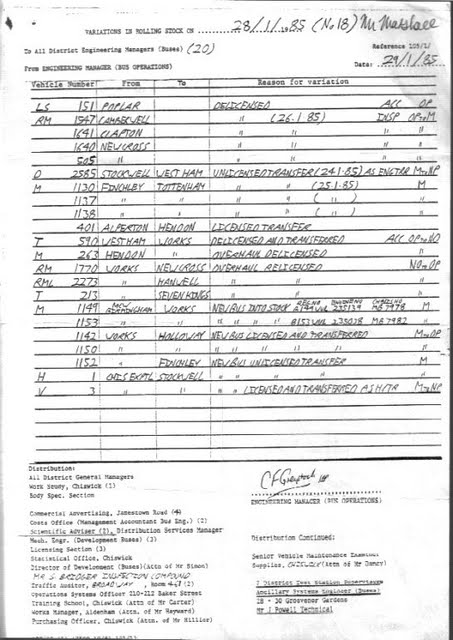 VARIATIONS IN ROLLING STOCK ON 28/1/1985 (No 18) Mr Marshall
To All District Engineering Managers (Buses) (20)
Reference 105/1/
From ENGINEERING MANAGER (BUS OPERATIONS)
Date: 29/1/85
Vehicle Number From To Reason for variation
LS 151 POPLAR DELICENSED ACC OP
RM 1547 CAMBERWELL " (26.1.85) INSP OP to M
1641 CLAPTON " " " "
1640 NEWCROSS " " " "
505 " " " " "
D 2585 STOCKWELL WEST HAM UNLICENSED TRANSFER (24.1.85) AS ENGTRR M to NP
M 1130 FINCHLEY TOTTENHAM " " (25.1.85) M
1137 " " " " ( " ) "
1138 " " " " ( " ) "
401 ALPERTON HENDON LICENSED TRANSFER
T 590 WESTHAM WORKS DELICENSED AND TRANSFERRED ACC OP to NO
M 263 HENDON " OVERHAUL DELICENSED "
RM 1770 WORKS NEWCROSS OVERHAUL RELICENSED NO to OP
RML 2273 " HANWELL " " "
T 213 " SEVEN KINGS " " "
M 1149 MCW BIRMINGHAM WORKS NEW BUS INTO STOCK REG NO ENGINE NO CHASSIS NO 235139 MB 7978 M
1153 " " " " " " B153WUL 235078 MB 7982 "
1142 WORKS HOLLOWAY NEW BUS LICENSED AND TRANSFERRED M to OP
1150 " " " " " " " "
1152 " FINCHLEY NEW BUS UNLICENSED TRANSFER M
H 1 CHIS EXPTL STOCKWELL " " " "
V 3 " " " " LICENSED AND TRANSFERRED AS H/TR M to NP
Distribution:
All District General Managers
Work Study, Chiswick (1)
Body Spec. Section
ENGINEERING MANAGER (BUS OPERATIONS)
Commercial Advertising, Jamestown Road (4)
Costs Office (Management Accountant Bus Eng.) (2)
Scientific Adviser (2), Distribution Services Manager
Mech. Engr. (Development Buses) (2)
Licensing Section (3)
Statistical Office, Chiswick
Director of Development (Buses)(Attn of Mr Simon)
MR S BRIDGER INSPECTION COMPOUND
Traffic Auditor, BROADWAY, Room
Operations Systems Officer 210-212 Baker Street
Training School, Chiswick (Attn of Mr Carter)
Works Manager, Aldenham (Attn of Mr Hayward)
Purchasing Officer, Chiswick (Attn. of Mr Hillier)
Distribution Continued:
Senior Vehicle Maintenance Examiner
Supplies, CHISWICK (Attn of Mr Dancy)
7 District Desk Station Supervisors
Ancillary Systems Engineer (Buses)
28 - 30 Grosvenor Gardens
Mr J Powell Technical